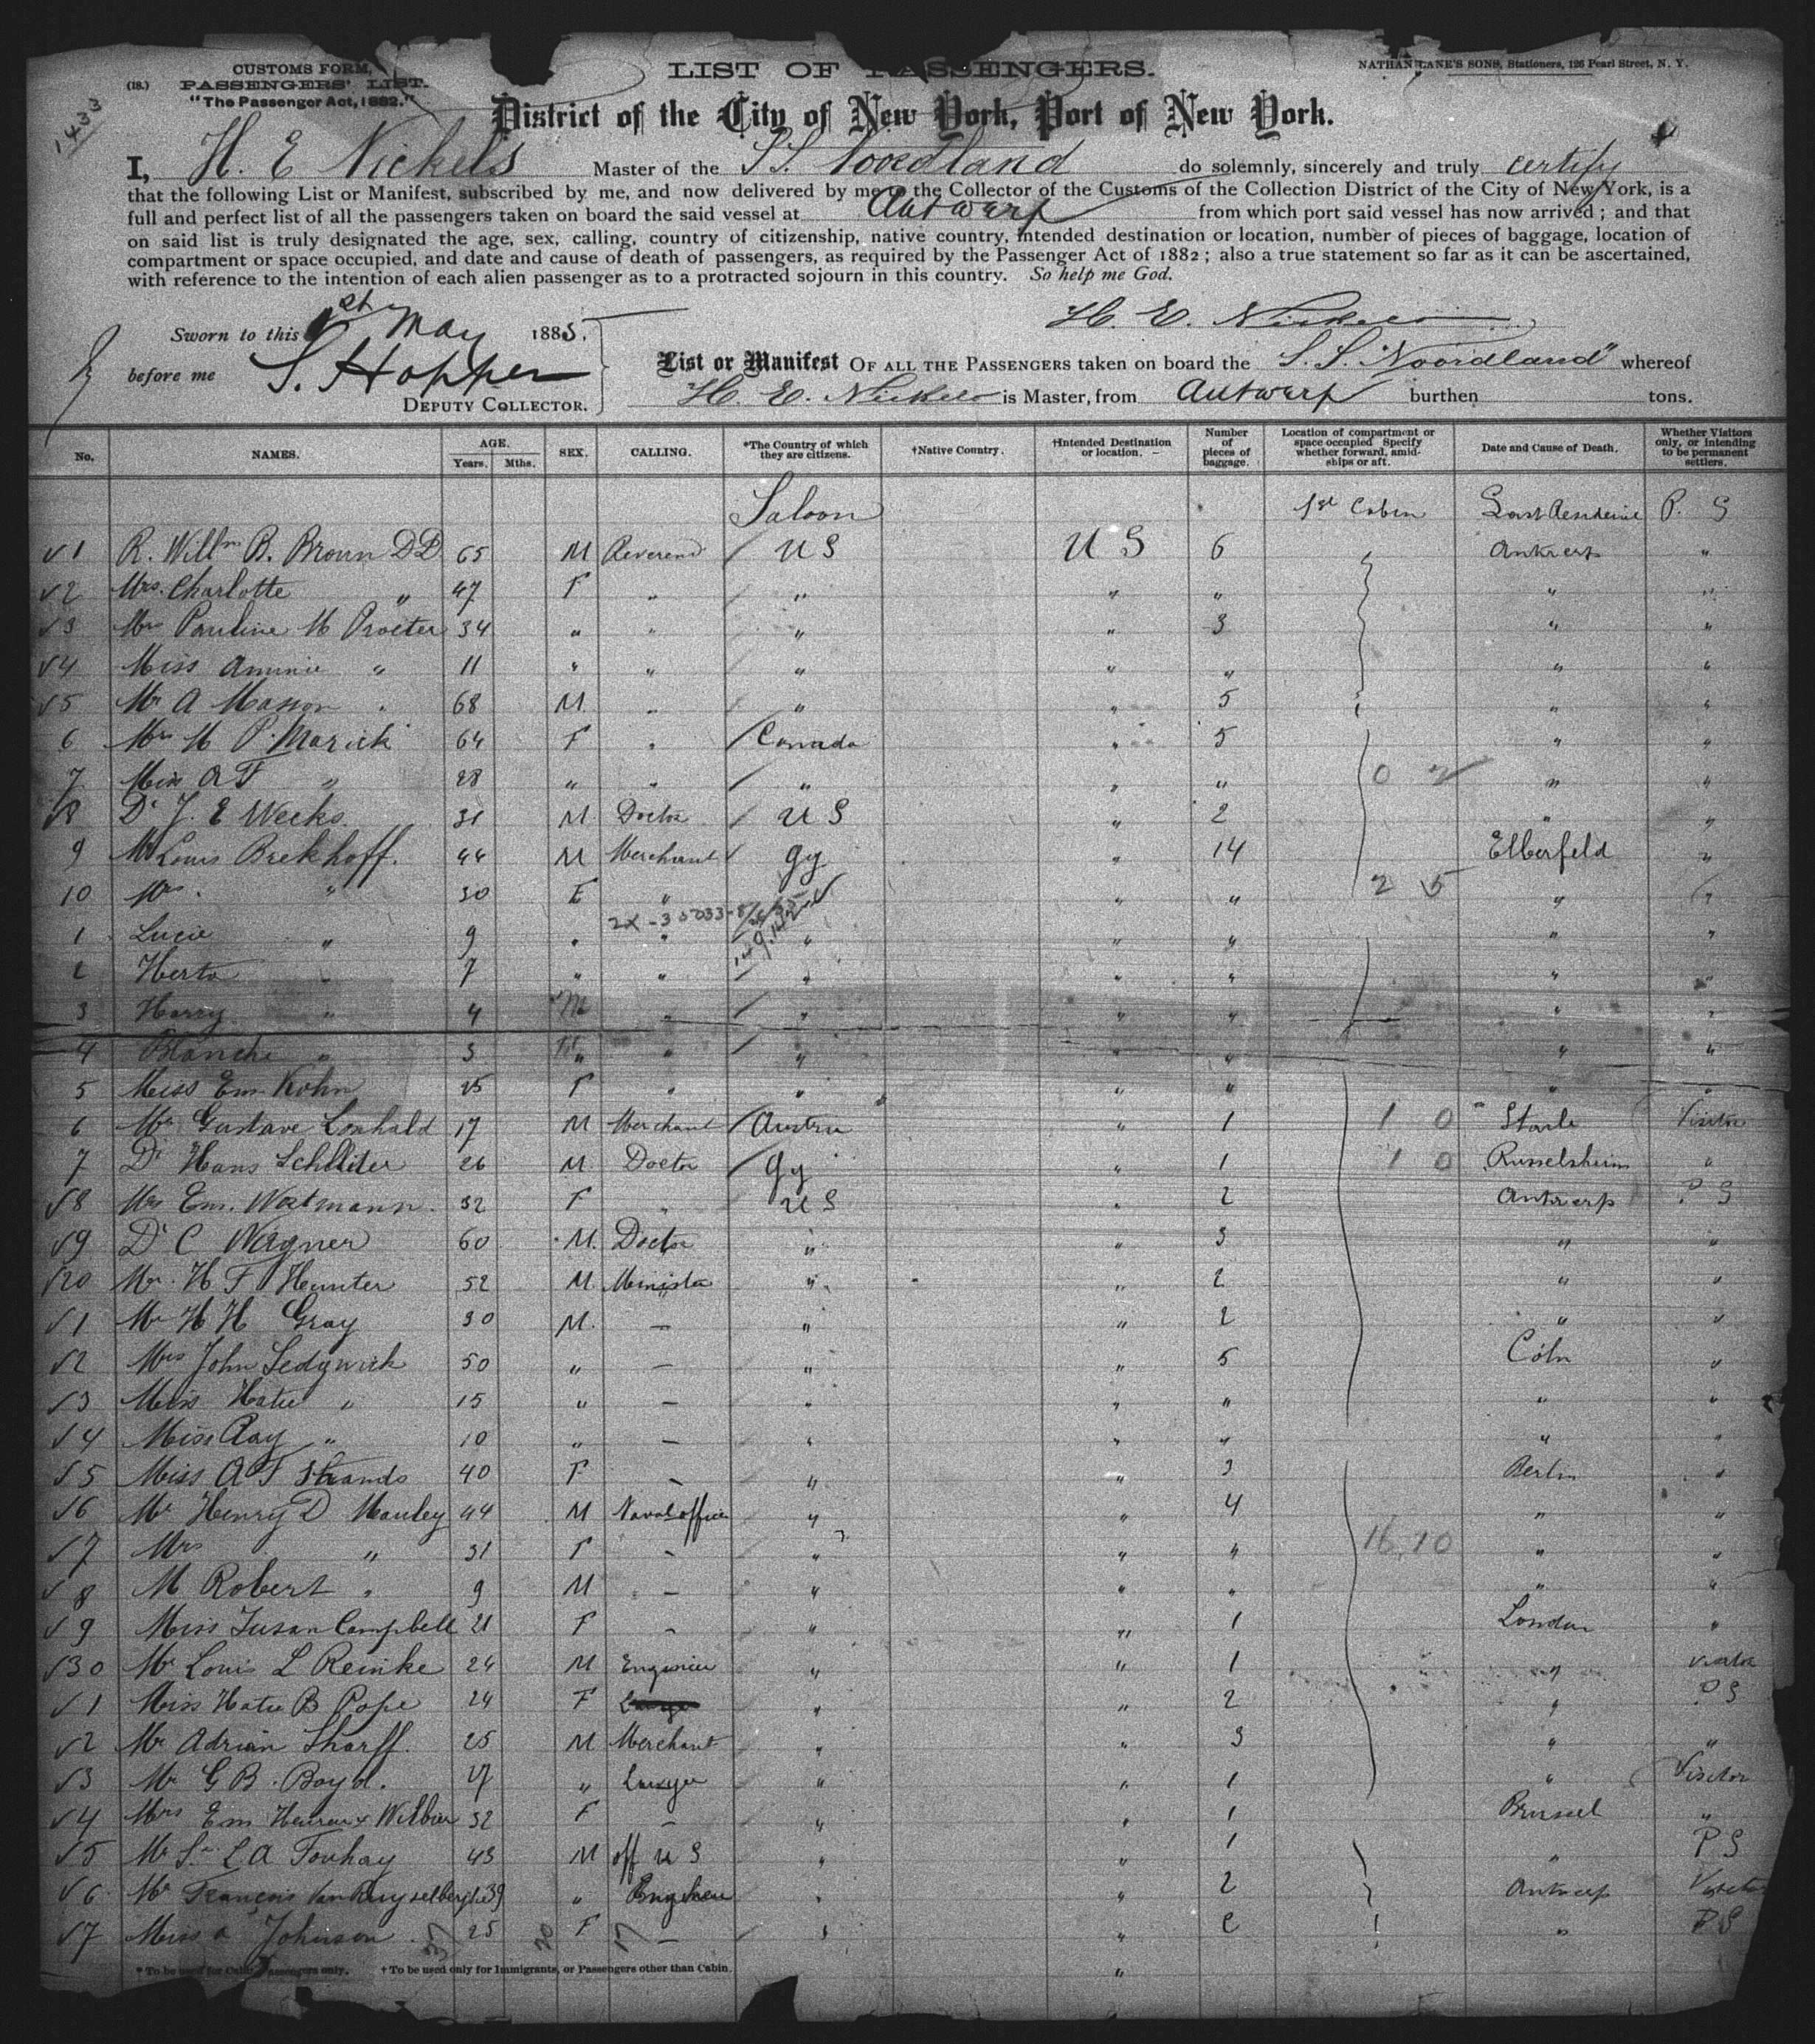 CUSTOMS FORM,
(18.) PASSENGERS' LIST.
"The Passenger Act, 1882."
1433
LIST OF PASSENGERS.
NATHAN LANE'S SONS, Stationers, 126 Pearl Street, N. Y.
District of the City of New York, Port of New York.
I, H. E Nickels Master of the S.S. Noordland do solemnly, sincerely and truly certify
that the following List or Manifest, subscribed by me, and now delivered by me to the Collector of the Customs of the Collection District of the City of New York, is a
full and perfect list of all the passengers taken on board the said vessel at Antwerp from which port said vessel has now arrived ; and that
on said list is truly designated the age, sex, calling, country of citizenship, native country, intended destination or location, number of pieces of baggage, location of
compartment or space occupied, and date and cause of death of passengers, as required by the Passenger Act of 1882 ; also a true statement so far as it can be ascertained,
with reference to the intention of each alien passenger as to a protracted sojourn in this country. So help me God.
H. E. Nickels
Sworn to this 1st May 1885.
before me S. Hopper
DEPUTY COLLECTOR.
List or Manifest OF ALL THE PASSENGERS taken on board the S. S. "Noordland" whereof
H. E. Nickels is Master, from Antwerp burthen tons.
No. NAMES. AGE. Years. Mths. SEX. CALLING. *The Country of which they are citizens. †Native Country. †Intended Destination or location. Number of pieces of baggage. Location of compartment or space occupied Specify whether forward, amidships or aft. Date and Cause of Death. Whether Visitors only, or intending to be permanent settlers.
Saloon 1st Cabin Last Residence P. S
1 R. Willm B. Brown DD 65 M Reverend U S U S 6 Antwerp "
2 Mrs. Charlotte " 47 F " " " " " "
3 Mrs Pauline M Procter 34 " " " " 3 " "
4 Miss Aminie " 11 " " " " " " "
5 Mr A Masson 68 M. " " " 5 " "
6 Mrs M P. Marick 64 F " Canada " 5 " "
7 Miss A F " 28 " " " " " 0 2 " "
8 Dr J. E Weeks. 31 M Doctor U S " 2 " "
9 Mr Louis Brekhoff. 44 M Merchant Gy " 14 Elberfeld "
10 Mrs. " 30 F " " " 2 5 " "
2X-35033-
1 Lucie " 9 " " " " " " "
2 Herta " 7 " " " " " " "
3 Harry " 4 M " " " " " "
4 Blanche " 3 " " " " " " "
5 Miss Em Kohn 25 F " " " " " "
6 Mr Gustave Lonhald 17 M Merchant Austria " 1 1 0 Visitor
7 Dr Hans Schliter 26 M. Doctor Gy " 1 1 0 Russelsheim "
8 Mrs Em. Watmann. 32 F " U S " 2 Antwerp P S
9 Dr C Wagner 60 M. Doctor " " 3 " "
20 Mr. H F Hunter 52 M Minister " " 2 " "
1 Mr H H Gray 30 M. — " " 2 " "
2 Mrs John Sedgwick 50 " — " " 5 Cöln "
3 Miss Hatie " 15 " — " " " " "
4 Miss Ray " 10 " — " " " " "
5 Miss A F Shands 40 F - " " 3 Berlin "
6 Mr Henry D Manley 44 M Naval officer " " 4 " "
7 Mrs " 31 F - " " " 16,10 " "
8 M Robert " 9 M — " " " " "
9 Miss Susan Campbell 21 F - " " 1 London "
30 Mr Louis L Reinke 24 M Engineer " " 1 " Visitor
1 Miss Hatie B Pope 24 F " " 2 " P S
2 Mr Adrian Sharff. 25 M Merchant " " 3 " "
3 Mr G B. Boyd. 27 " Lawyer " " 1 " Visitor
4 Mrs Em 32 F — " " 1 Brussel "
5 Mr 43 M off U S " " 1 " P S
6 Mr François Van Rysselberghe 39 " Engineer " " 2 Antwerp Visitor
7 Miss a Johnson 25 F — " " 2 " P S
37 20 17
* To be used for Cabin Passengers only. † To be used only for Immigrants, or Passengers other than Cabin.
"